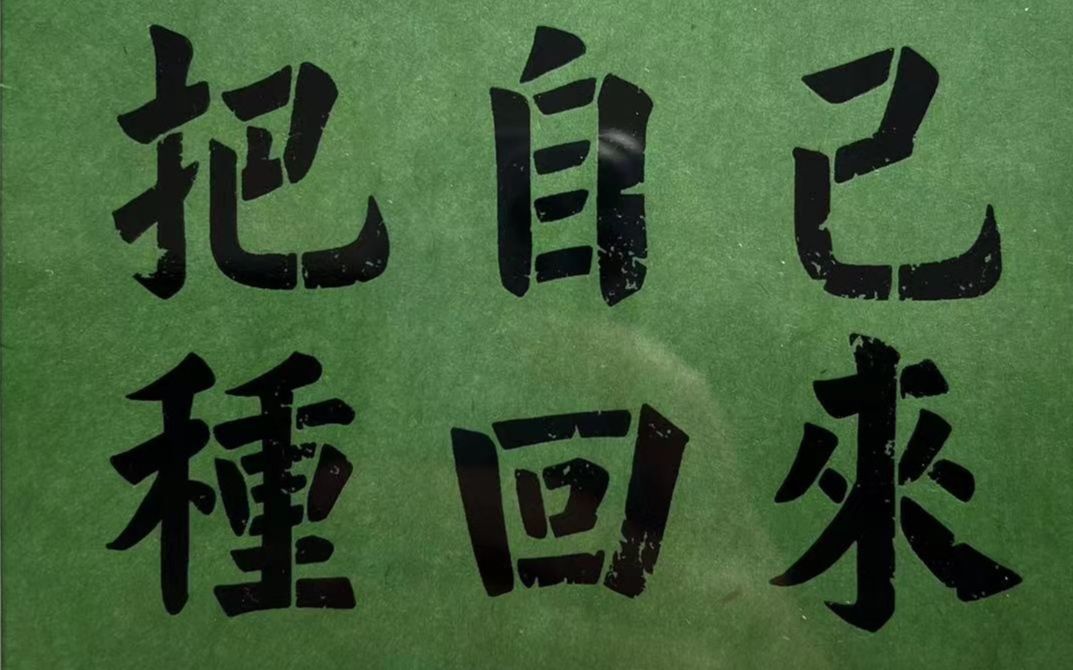 把自己
種回來